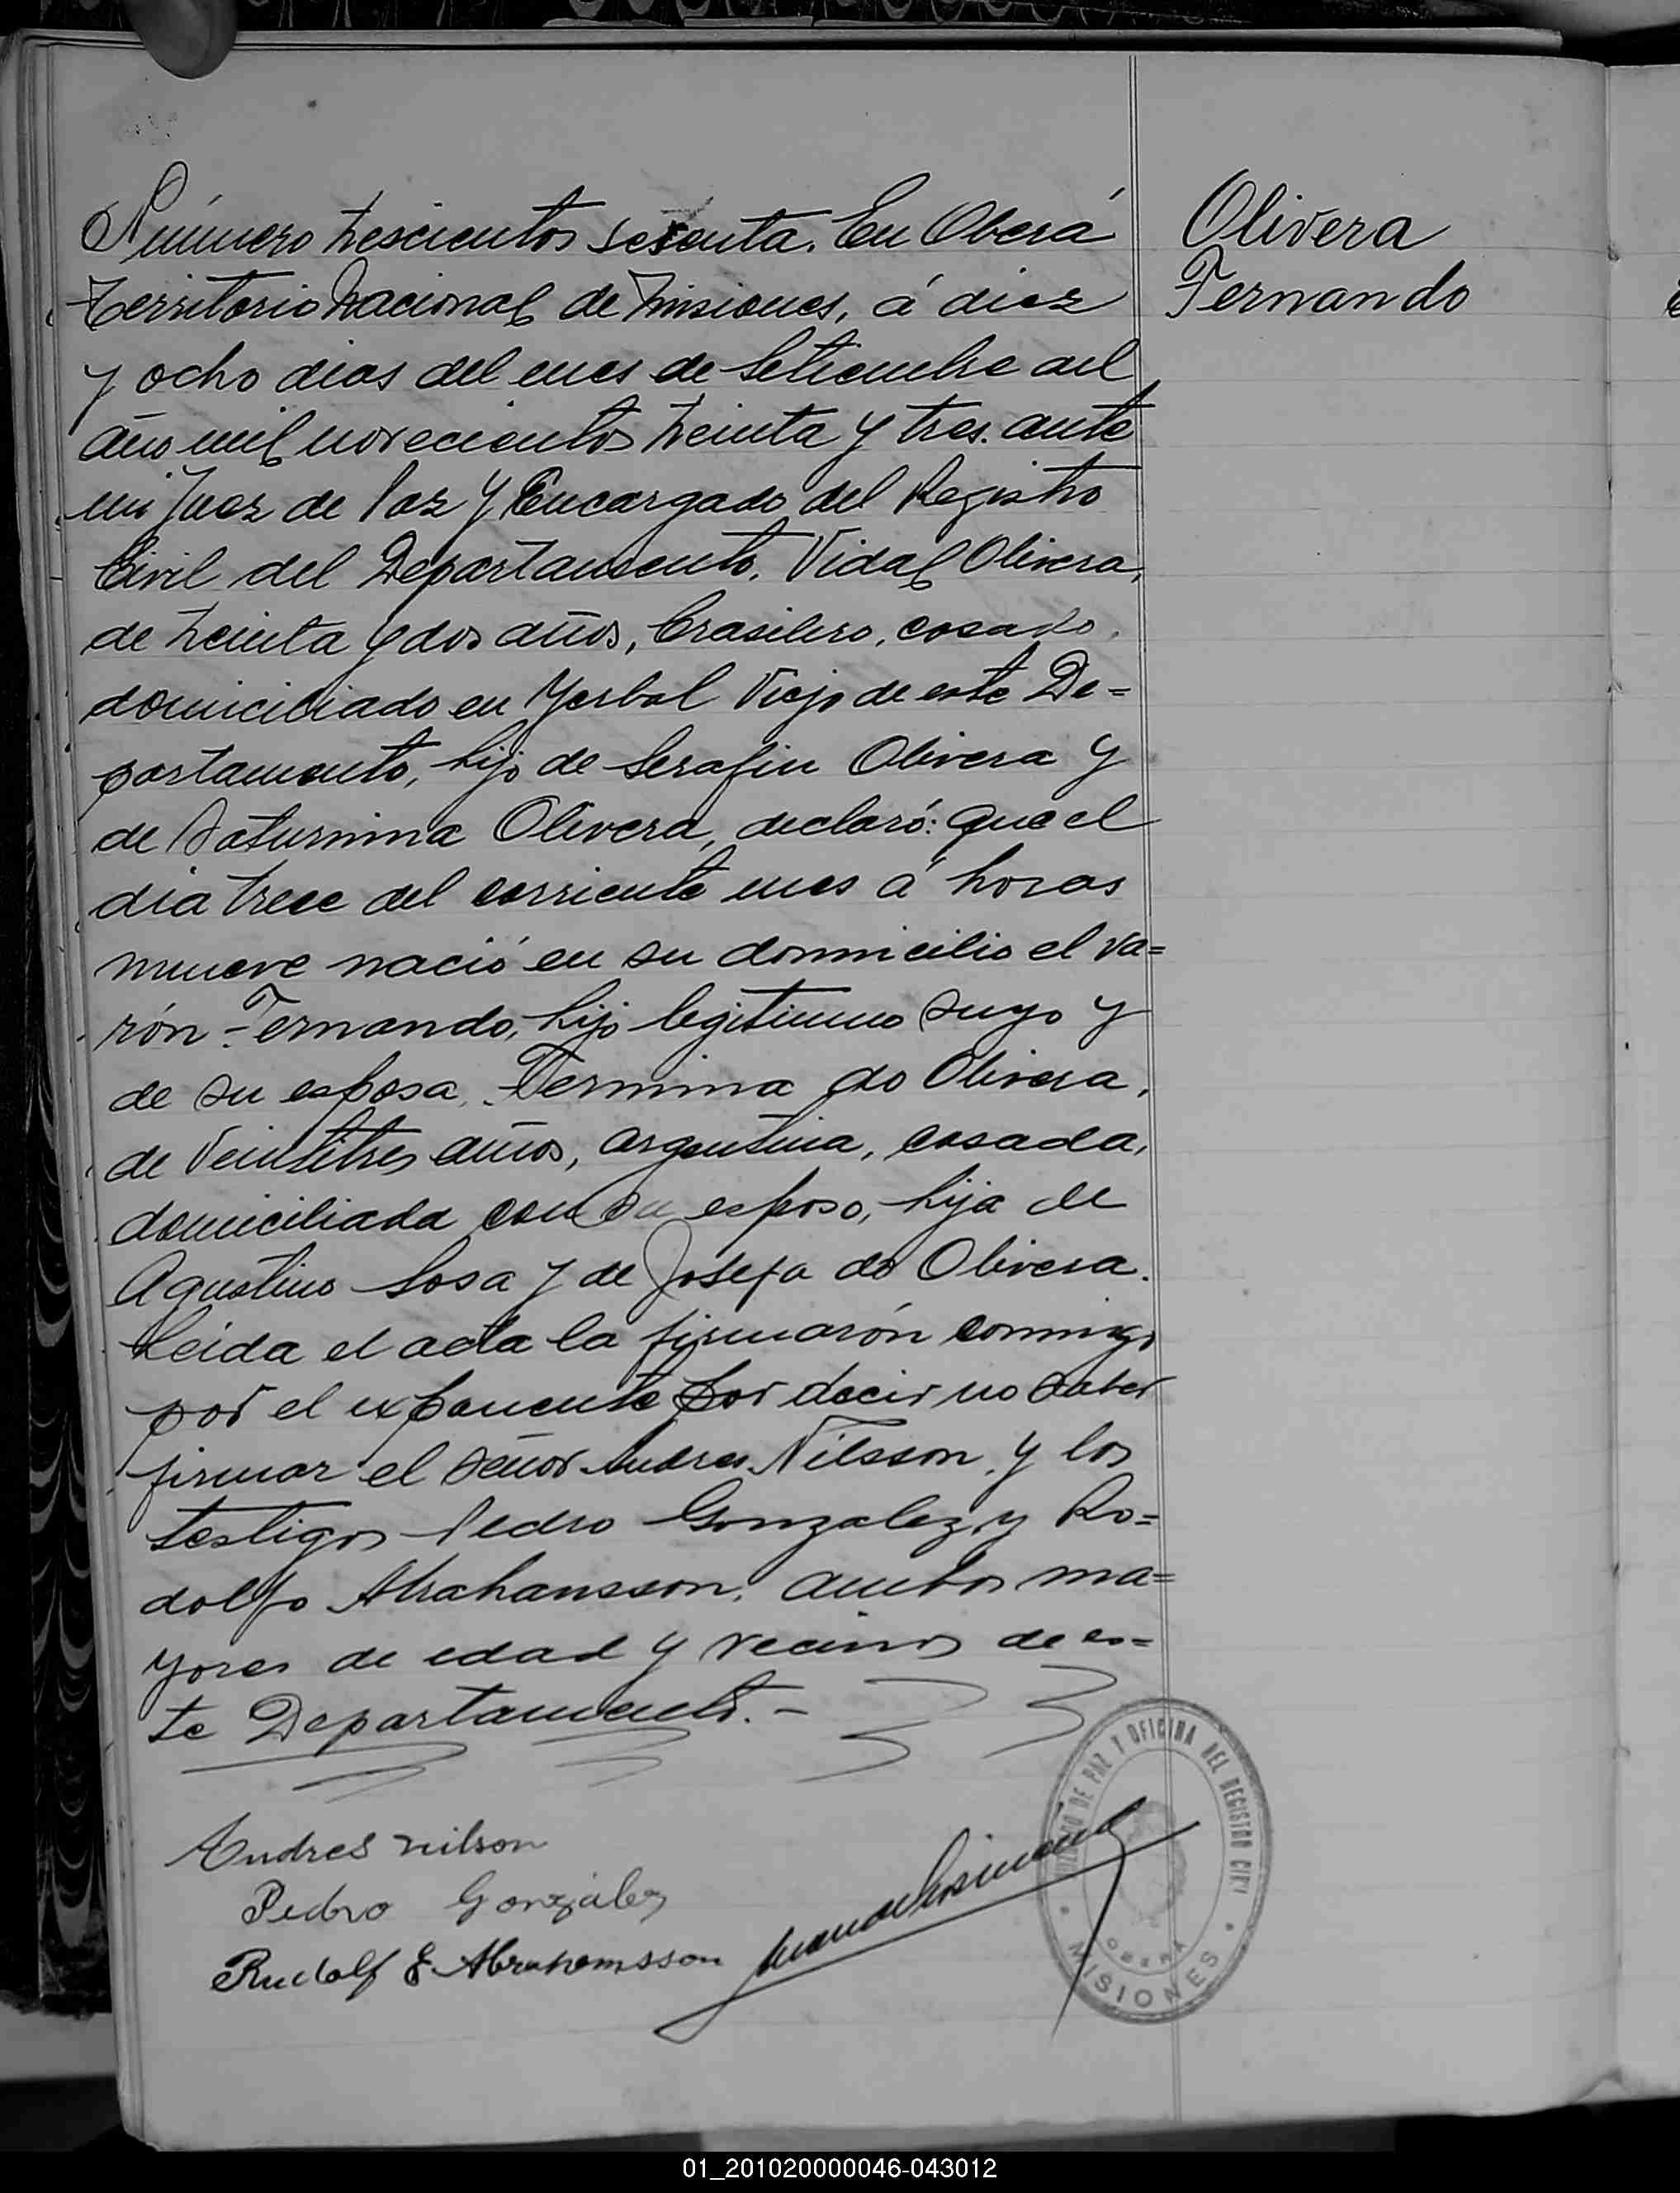 Número trescientos sesenta. En Oberá
Territorio Nacional de Misiones, á diez
y ocho dias del mes de Setiembre del
año mil novecientos treinta y tres. ante
mi Juez de Paz y Encargado del Registro
Civil del Departamento, Vidal Olivera,
de treinta y dos años, brasilero, casado,
domiciliado en Yerbal Viejo de este De=
partamento, hijo de Serafin Olivera y
de Saturnina Olivera, declaró: que el
dia trece del corriente mes á horas
nueve nació en su domicilio el va=
rón Fernando, hijo legitimo suyo y
de su esposa, Fermina do Olivera,
de veintitres años, argentina, casada,
domiciliada con su esposo, hija de
Agustino Sosa y de Josefa do Olivera.
Leida el acta la firmarón conmigo
por el exponente por decir no saber
firmar el señor Andres Nilsson y los
testigos Pedro Gonzalez y Ro=
dolfo Abrahansson, ambos ma=
yores de edad y vecinos de es=
te Departamento.-
Olivera
Fernando
Andres nilson
Pedro Gonzalez
Rudolf E. Abrahamsson
JUZGADO DE PAZ Y OFICINA DEL REGISTRO CIVIL
OBERA
MISIONES
01_201020000046-043012